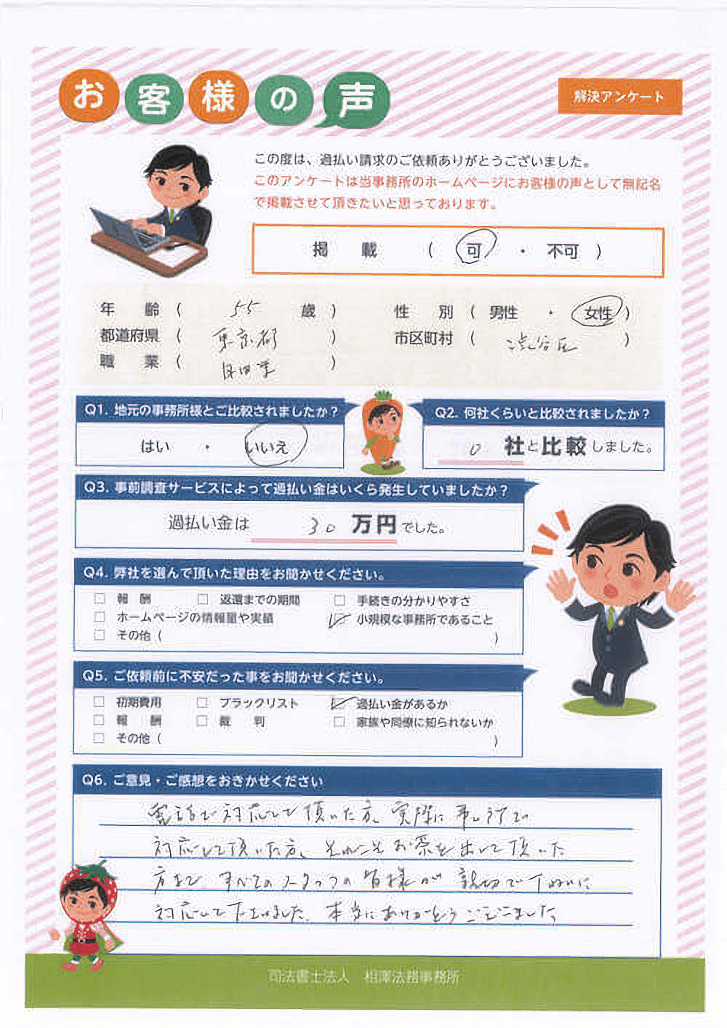 お客様の声
解決アンケート
この度は、過払い請求のご依頼ありがとうございました。
このアンケートは当事務所のホームページにお客様の声として無記名
で掲載させて頂きたいと思っております。
掲　載　(　可　・　不可　)
年　齢 (　55　歳 )　性　別 ( 男性 ・ 女性 )
都道府県 (　東京都　)　市区町村 (　渋谷区　)
職　業 (　自由業　)
Q1. 地元の事務所様とご比較されましたか？
はい　・　いいえ
Q2. 何社くらいと比較されましたか？
0 社と比較しました。
Q3. 事前調査サービスによって過払い金はいくら発生していましたか？
過払い金は　30　万円でした。
Q4. 弊社を選んで頂いた理由をお聞かせください。
□ 報　酬　□ 返還までの期間　□ 手続きの分かりやすさ
□ ホームページの情報量や実績　☑ 小規模な事務所であること
□ その他 (　)
Q5. ご依頼前に不安だった事をお聞かせください。
□ 初期費用　□ ブラックリスト　☑ 過払い金があるか
□ 報　酬　□ 裁　判　□ 家族や同僚に知られないか
□ その他 (　)
Q6. ご意見・ご感想をおきかせください
電話で対応して頂いた方、実際に事ム所で
対応して頂いた方、それこそお茶を出して頂いた
方まで、すべてのスタッフの皆様が親切で丁ねいに
対応して下さいました。本当にありがとうございました
司法書士法人　相澤法務事務所